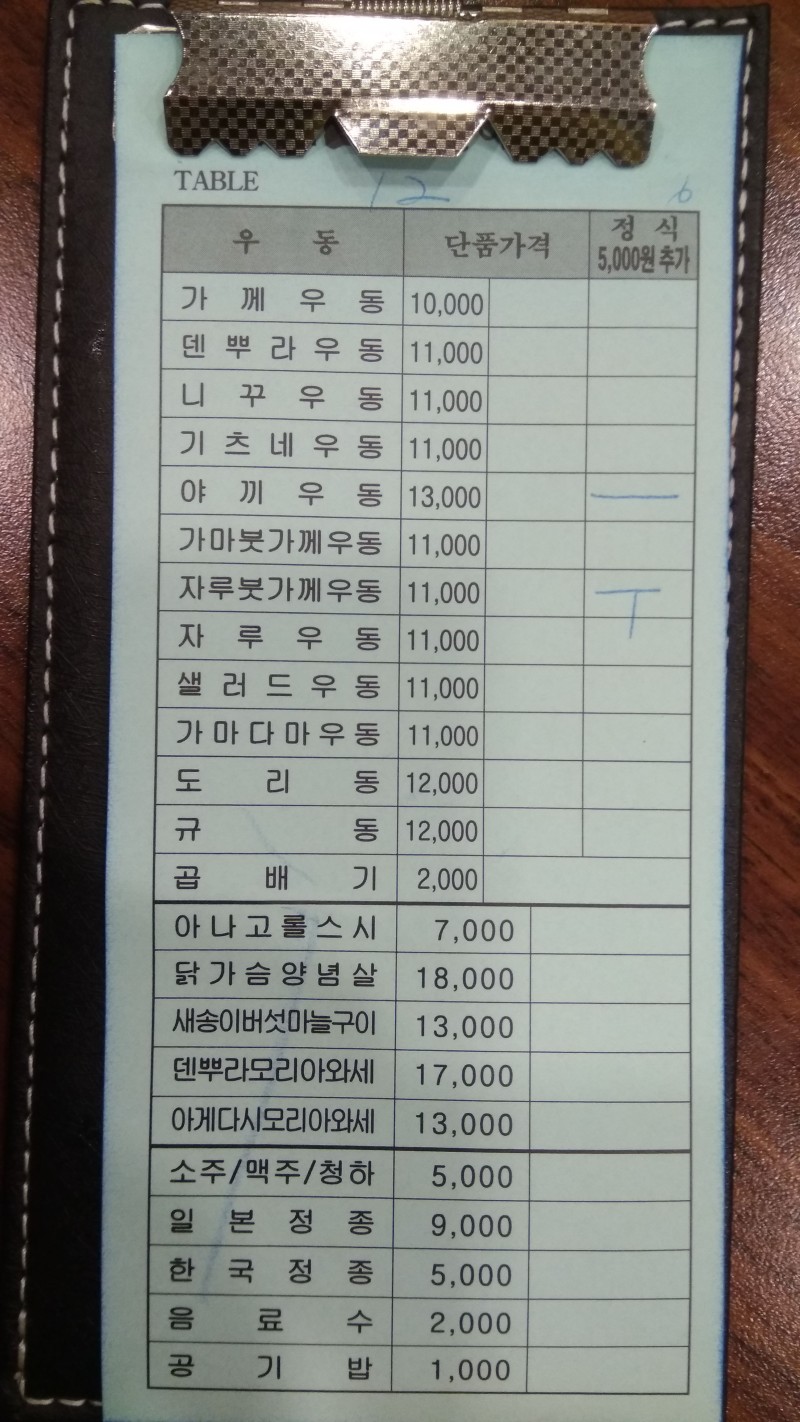 TABLE 12 6
우동 단품가격 정식 5,000원 추가
가께우동 10,000
덴뿌라우동 11,000
니꾸우동 11,000
기츠네우동 11,000
야끼우동 13,000 一
가마붓가께우동 11,000
자루붓가께우동 11,000 T
자루우동 11,000
샐러드우동 11,000
가마다마우동 11,000
도리동 12,000
규동 12,000
곱배기 2,000
아나고롤스시 7,000
닭가슴양념살 18,000
새송이버섯마늘구이 13,000
덴뿌라모리아와세 17,000
아게다시모리아와세 13,000
소주/맥주/청하 5,000
일본정종 9,000
한국정종 5,000
음료수 2,000
공기밥 1,000